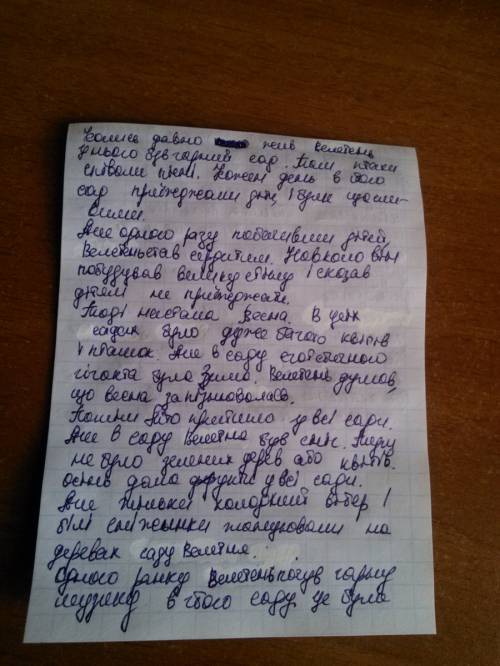 Колись давно жив велетень
У нього був гарний сад. Там птахи
співали пісні. Кожен день в його
сад приїжджали діти, і були щасли-
вими.
Але одного разу побачивши дітей,
Велетень став сердитим. Навколо він
побудував велику стіну і сказав
дітям не приїжджати.
Тоді настала весна. В цих
садах було дуже багато квітів
і пташок. Але в саду егоїстичного
гіганта була Зима. Велетень думав,
що весна запізнювалась.
Пошки літо прийшло у всі сади.
Але в саду Велетня був сніг. Там
не було зелених дерев або квітів.
осінь дала фрукти у всі сади.
Але тільки холодний вітер і
білі сніжинки танцювали на
деревах саду Велетня.
Одного ранку Велетень почув гарну
музику в його саду це була